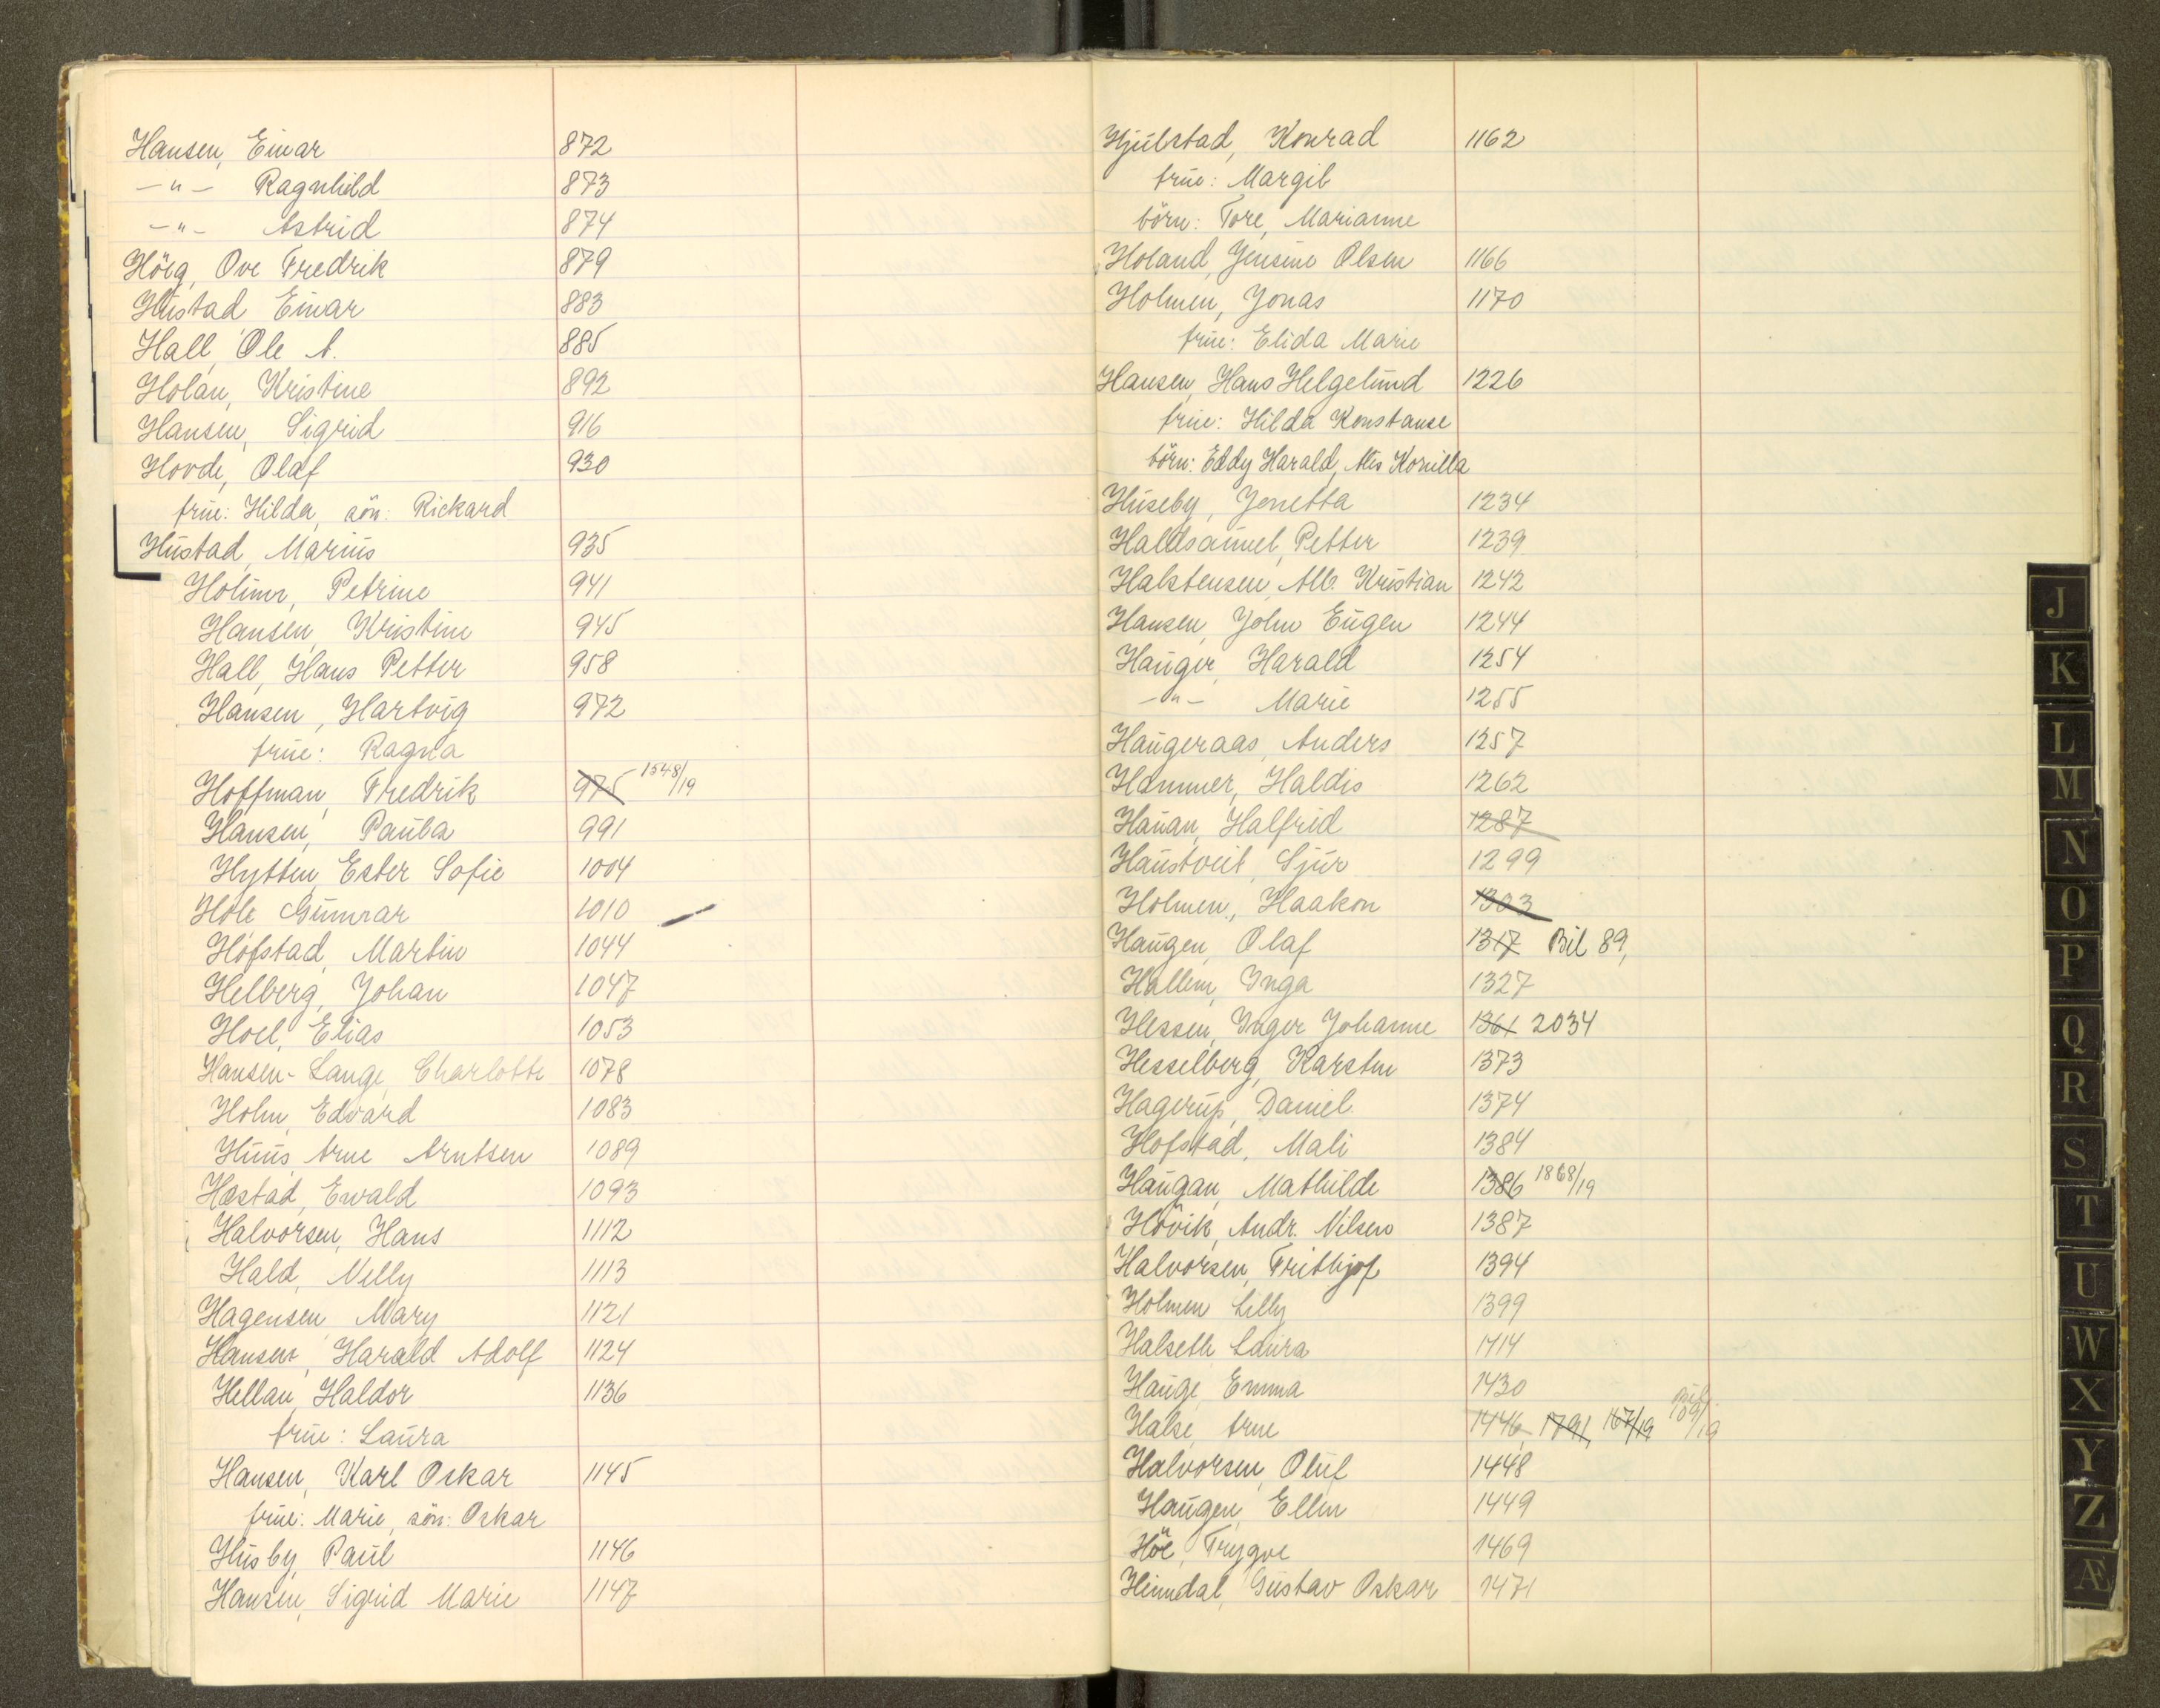 Hansen, Einar 872
—"— Ragnhild 873
—"— Astrid 874
Höeg, Ove Fredrik 879
Hustad Einar 883
Hall, Ole A. 885
Holan, Kristine 892
Hansen, Sigrid 916
Hovde, Olaf 930
frue: Hilda, sön: Rickard
Hustad, Marius 935
Petrine 941
Hansen, Kristine 945
Hall, Hans Petter 958
Hansen, Hartvig 972
frue: Ragna
Hoffman, Fredrik 975 1548/19
Hansen, Paula 991
Hytten, Ester Sofie 1004
Hole Gunnar 1010
Hofstad, Martin 1044
Helberg, Johan 1047
Hoel, Elias 1053
Hansen-Lange, Charlotte 1078
Holm, Edvard 1083
Huus, Arne Arntsen 1089
Hastad, Ewald 1093
Halvorsen, Hans 1112
Hald, Nelly 1113
Hagensen, Mary 1121
Hansen, Harald Adolf 1124
Hellan, Haldor 1136
frue: Laura
Hansen, Karl Oskar 1145
frue: Marie, sön: Oskar
Husby, Paul 1146
Hansen, Sigrid Marie 1147
Hjulstad, Konrad 1162
frue: Margit
börn: Tore, Marianne
Holand, Jensine Olsen 1166
Holmen, Jonas 1170
frue: Elida Marie
Hansen, Hans Helgelund 1226
frue: Hilda Konstanse
börn: Eddy Harald,
Huseby, Jonetta 1234
Petter 1239
Halstensen, Alb. Kristian 1242
Hansen, John Eugen 1244
Hauger, Harald 1254
—"— Marie 1255
Haugeraas, Anders 1257
Hammer, Haldis 1262
Hauan, Halfrid 1287
Haustveit, Sjur 1299
Holmen, Haakon 1303
Haugen, Olaf 1317 Bil 89,
Hallem, Inga 1327
Hessen, Inger Johanne 1361 2034
Hesselberg, Karsten 1373
Hagerup, Daniel 1374
Hofstad, Mali 1384
Haugan, Mathilde 1386 1868/19
Hövik, Andr. Nilsen 1387
Halvorsen, Frithjof 1394
Holmen Lilly 1399
Halseth Laura 1414
Hauge, Emma 1430
Halse, Arne 1446, 1791, 167/19 109/19
Halvorsen, Oluf 1448
Haugen, Ellen 1449
Höe, Trygve 1469
Heimdal, Gustav Oskar 1471
J
K
L
M
N
O
P
Q
R
S
T
U
W
X
Y
Z
Æ